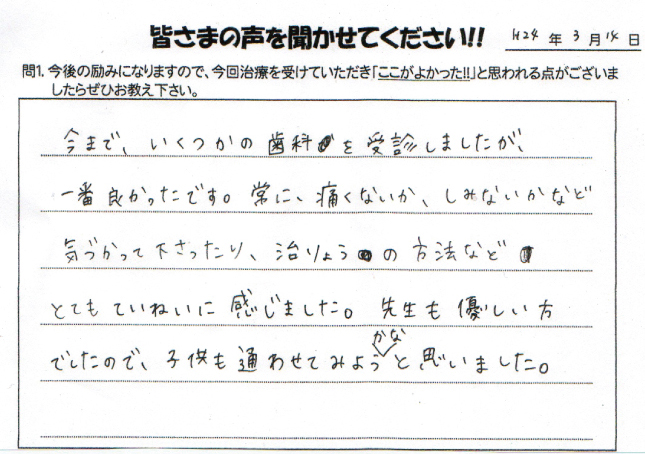 皆さまの声を聞かせてください!! H24年3月14日
問1. 今後の励みになりますので、今回治療を受けていただき「ここがよかった!!」と思われる点がございま
したらぜひお教え下さい。
今まで、いくつかの歯科を受診しましたが、
一番良かったです。常に、痛くないか、しみないかなど
気づかって下さったり、治りょうの方法など
とてもていねいに感じました。先生も優しい方
でしたので、子供も通わせてみようかなと思いました。